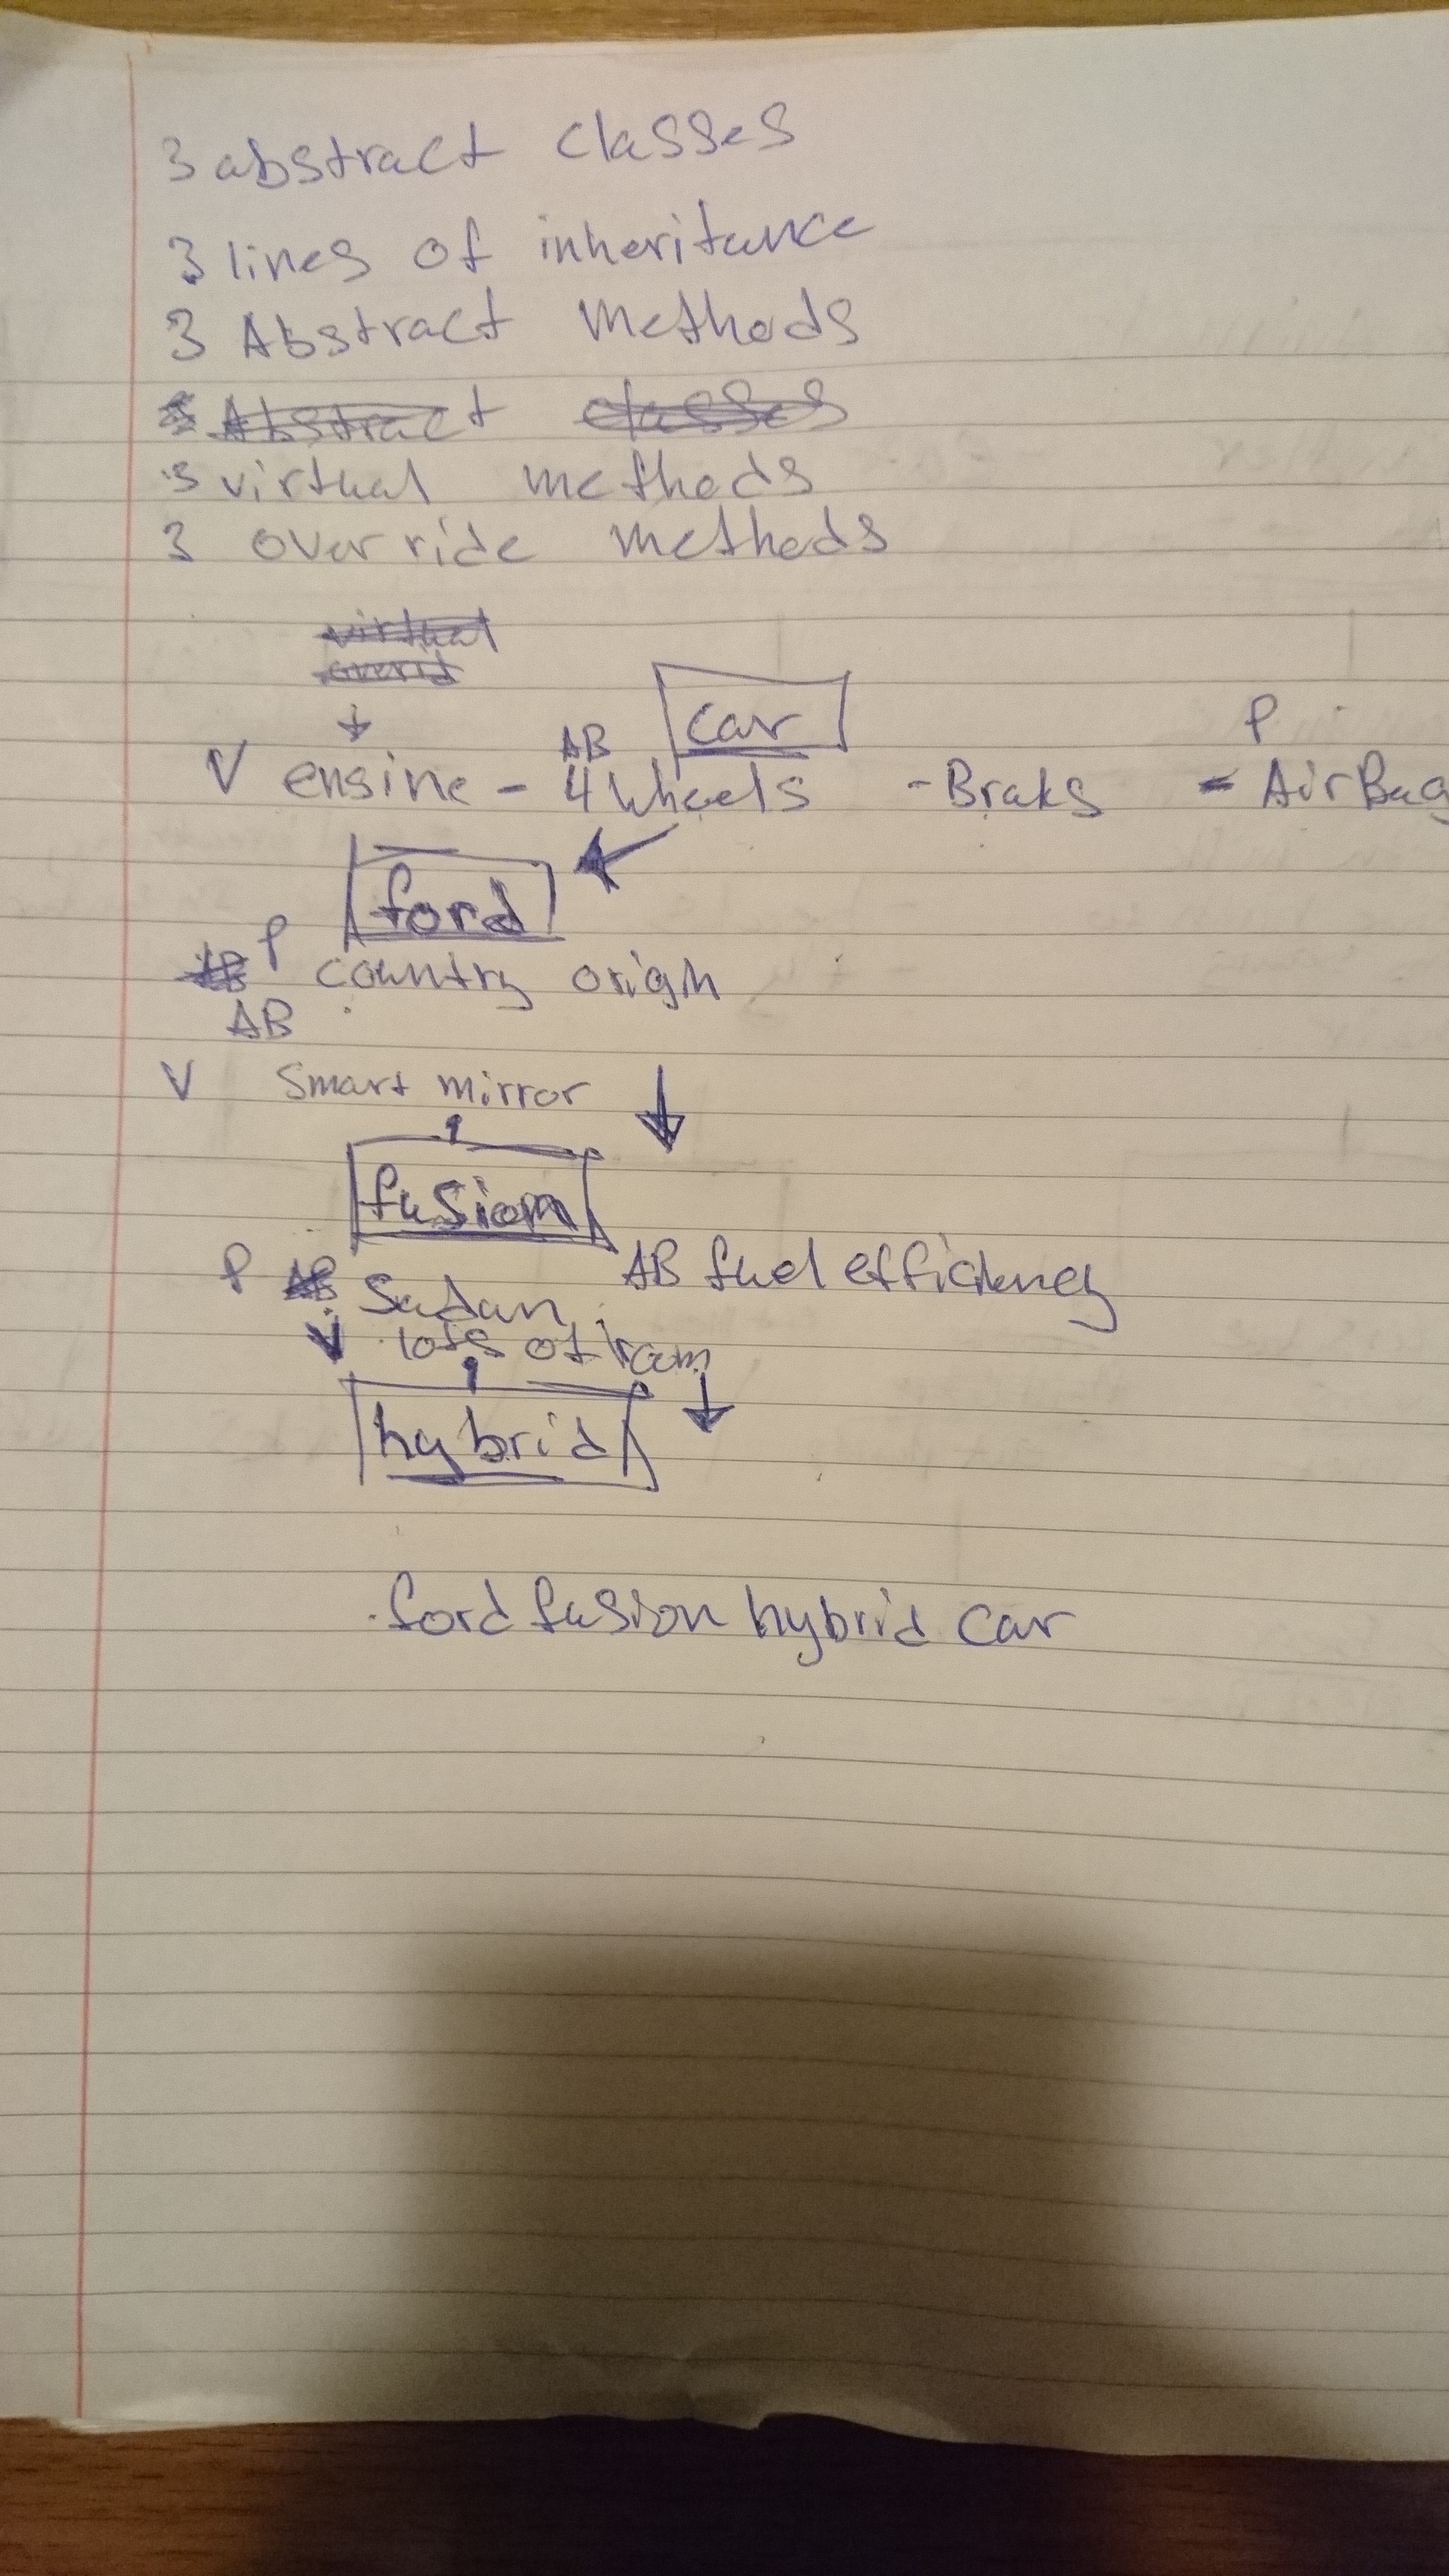 3 abstract classes
3 lines of inheritance
3 Abstract methods
3 Abstract classes
3 virtual methods
3 override methods
virtual
overid
car
V engine - AB 4 wheels - Braks - P AirBag
ford
AB P country origin
AB
V Smart mirror
fusion
P AB Sadan AB fuel efficiency
V lots of room
hybrid
ford fusion hybrid car